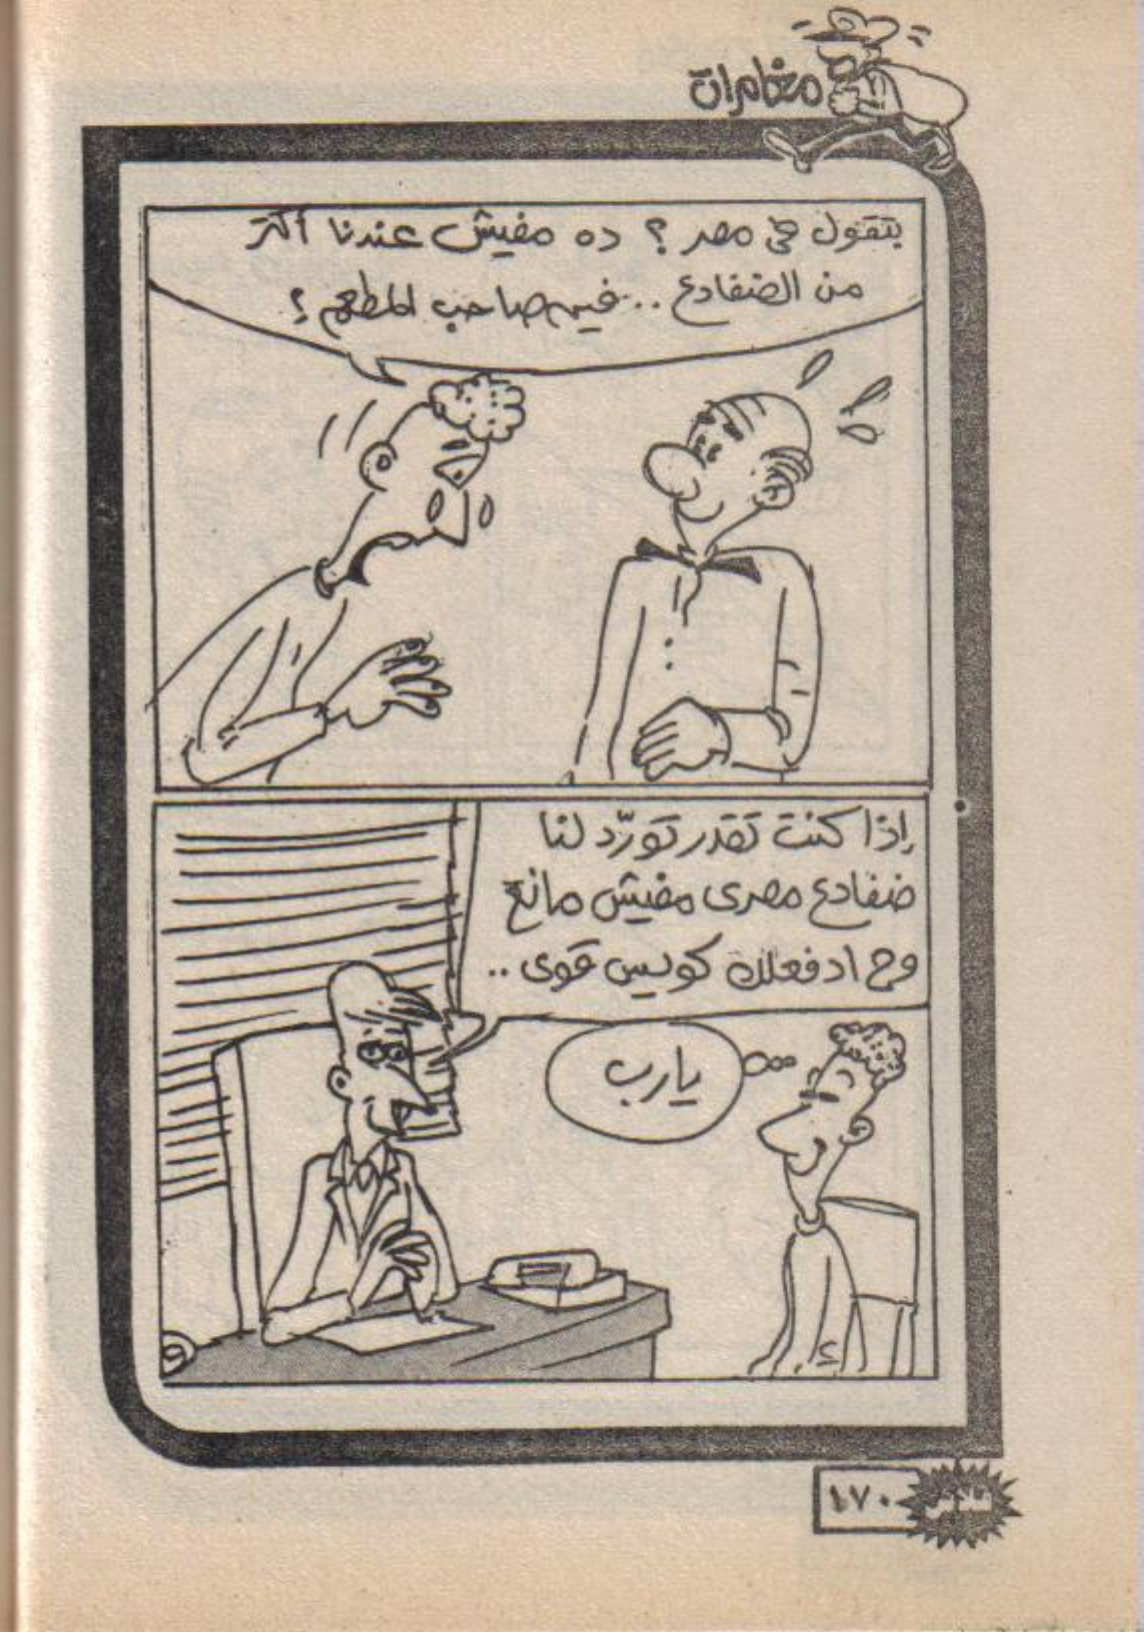 مغامرات
بتقول في مصر ؟ ده مفيش عندنا أكتر
من الضفادع .. فين صاحب المطعم ؟
إذا كنت تقدر تورّد لنا
ضفادع مصرى مفيش مانع
وح ادفعلك كويس قوى ..
يارب
١٧٠
فلاش